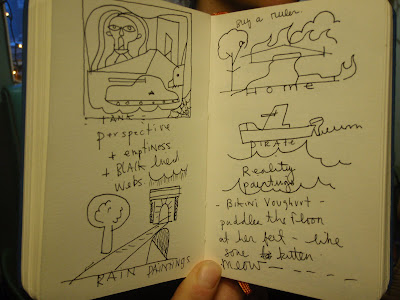 TANK
perspective
+ emptiness
+ BLACK lined
webs.
RAIN PAINTINGS
buy a ruler.
HOME
PIRATE
Reality
paintings
- Bikini Voughurt -
puddles the floor
at her feet - like
some kitten
meow - - - - -